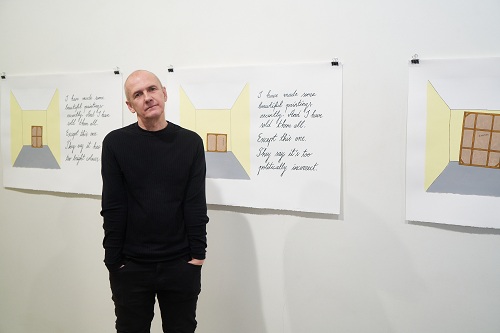 I have made some
beautiful paintings
recently! And I have
sold them all.
Except this one.
They say it
too bright colours.
I have made some
beautiful paintings
recently! And I have
sold them all.
Except this one.
They say it's too
politically incorrect.